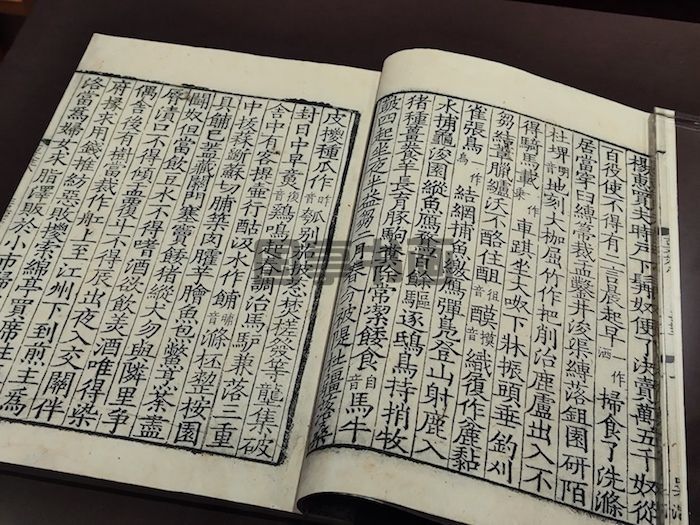 楊惠買夫時戶下髯奴便了決賣萬五千奴從
百役使不得有二言晨起早洒一作掃食了洗滌
居當穿臼縛箒裁盂鑿井浚渠縛落鉏園研陌
杜埤音明地刻大枷屈竹作杷削治鹿盧出入不
得騎馬載一作乘車踑坐大呶下牀振頭垂釣刈
芻結葦臘纑沃不酪住音徂醭音摸織履作麄黏
雀張烏一作鳥結網捕魚繳鴈彈鳧登山射鹿入
水捕龜浚園縱魚鴈餘驅逐鴟鳥持捎牧
猪種薑養芋長育豚駒常潔餧食音自馬牛
鼓四起坐夜半益芻二春分被隄杜疆落桑
皮椶種瓜作音昨瓠別焚槎發芋壟集破
封日中早音後鷄鳴調治馬驢兼落三重
舍中有客提壺行酤汲水作餔音晡滌杯整桉園
中拔蒜斷蘇切脯築肉臛芋膾魚炰鱉烹荼盡
具餔已蓋藏關門塞竇餧猪縱犬勿與隣里爭
鬬奴但當飯豆水不得嗜酒欲飲美酒唯得染
脣漬口不得傾盂覆斗不得辰出夜入交關伴
偶舍後有樹當裁作舡上至江州下到前主為
府掾求用錢推紡惡敗椶索綿亭買席往
落當為婦女求脂澤販於小市歸